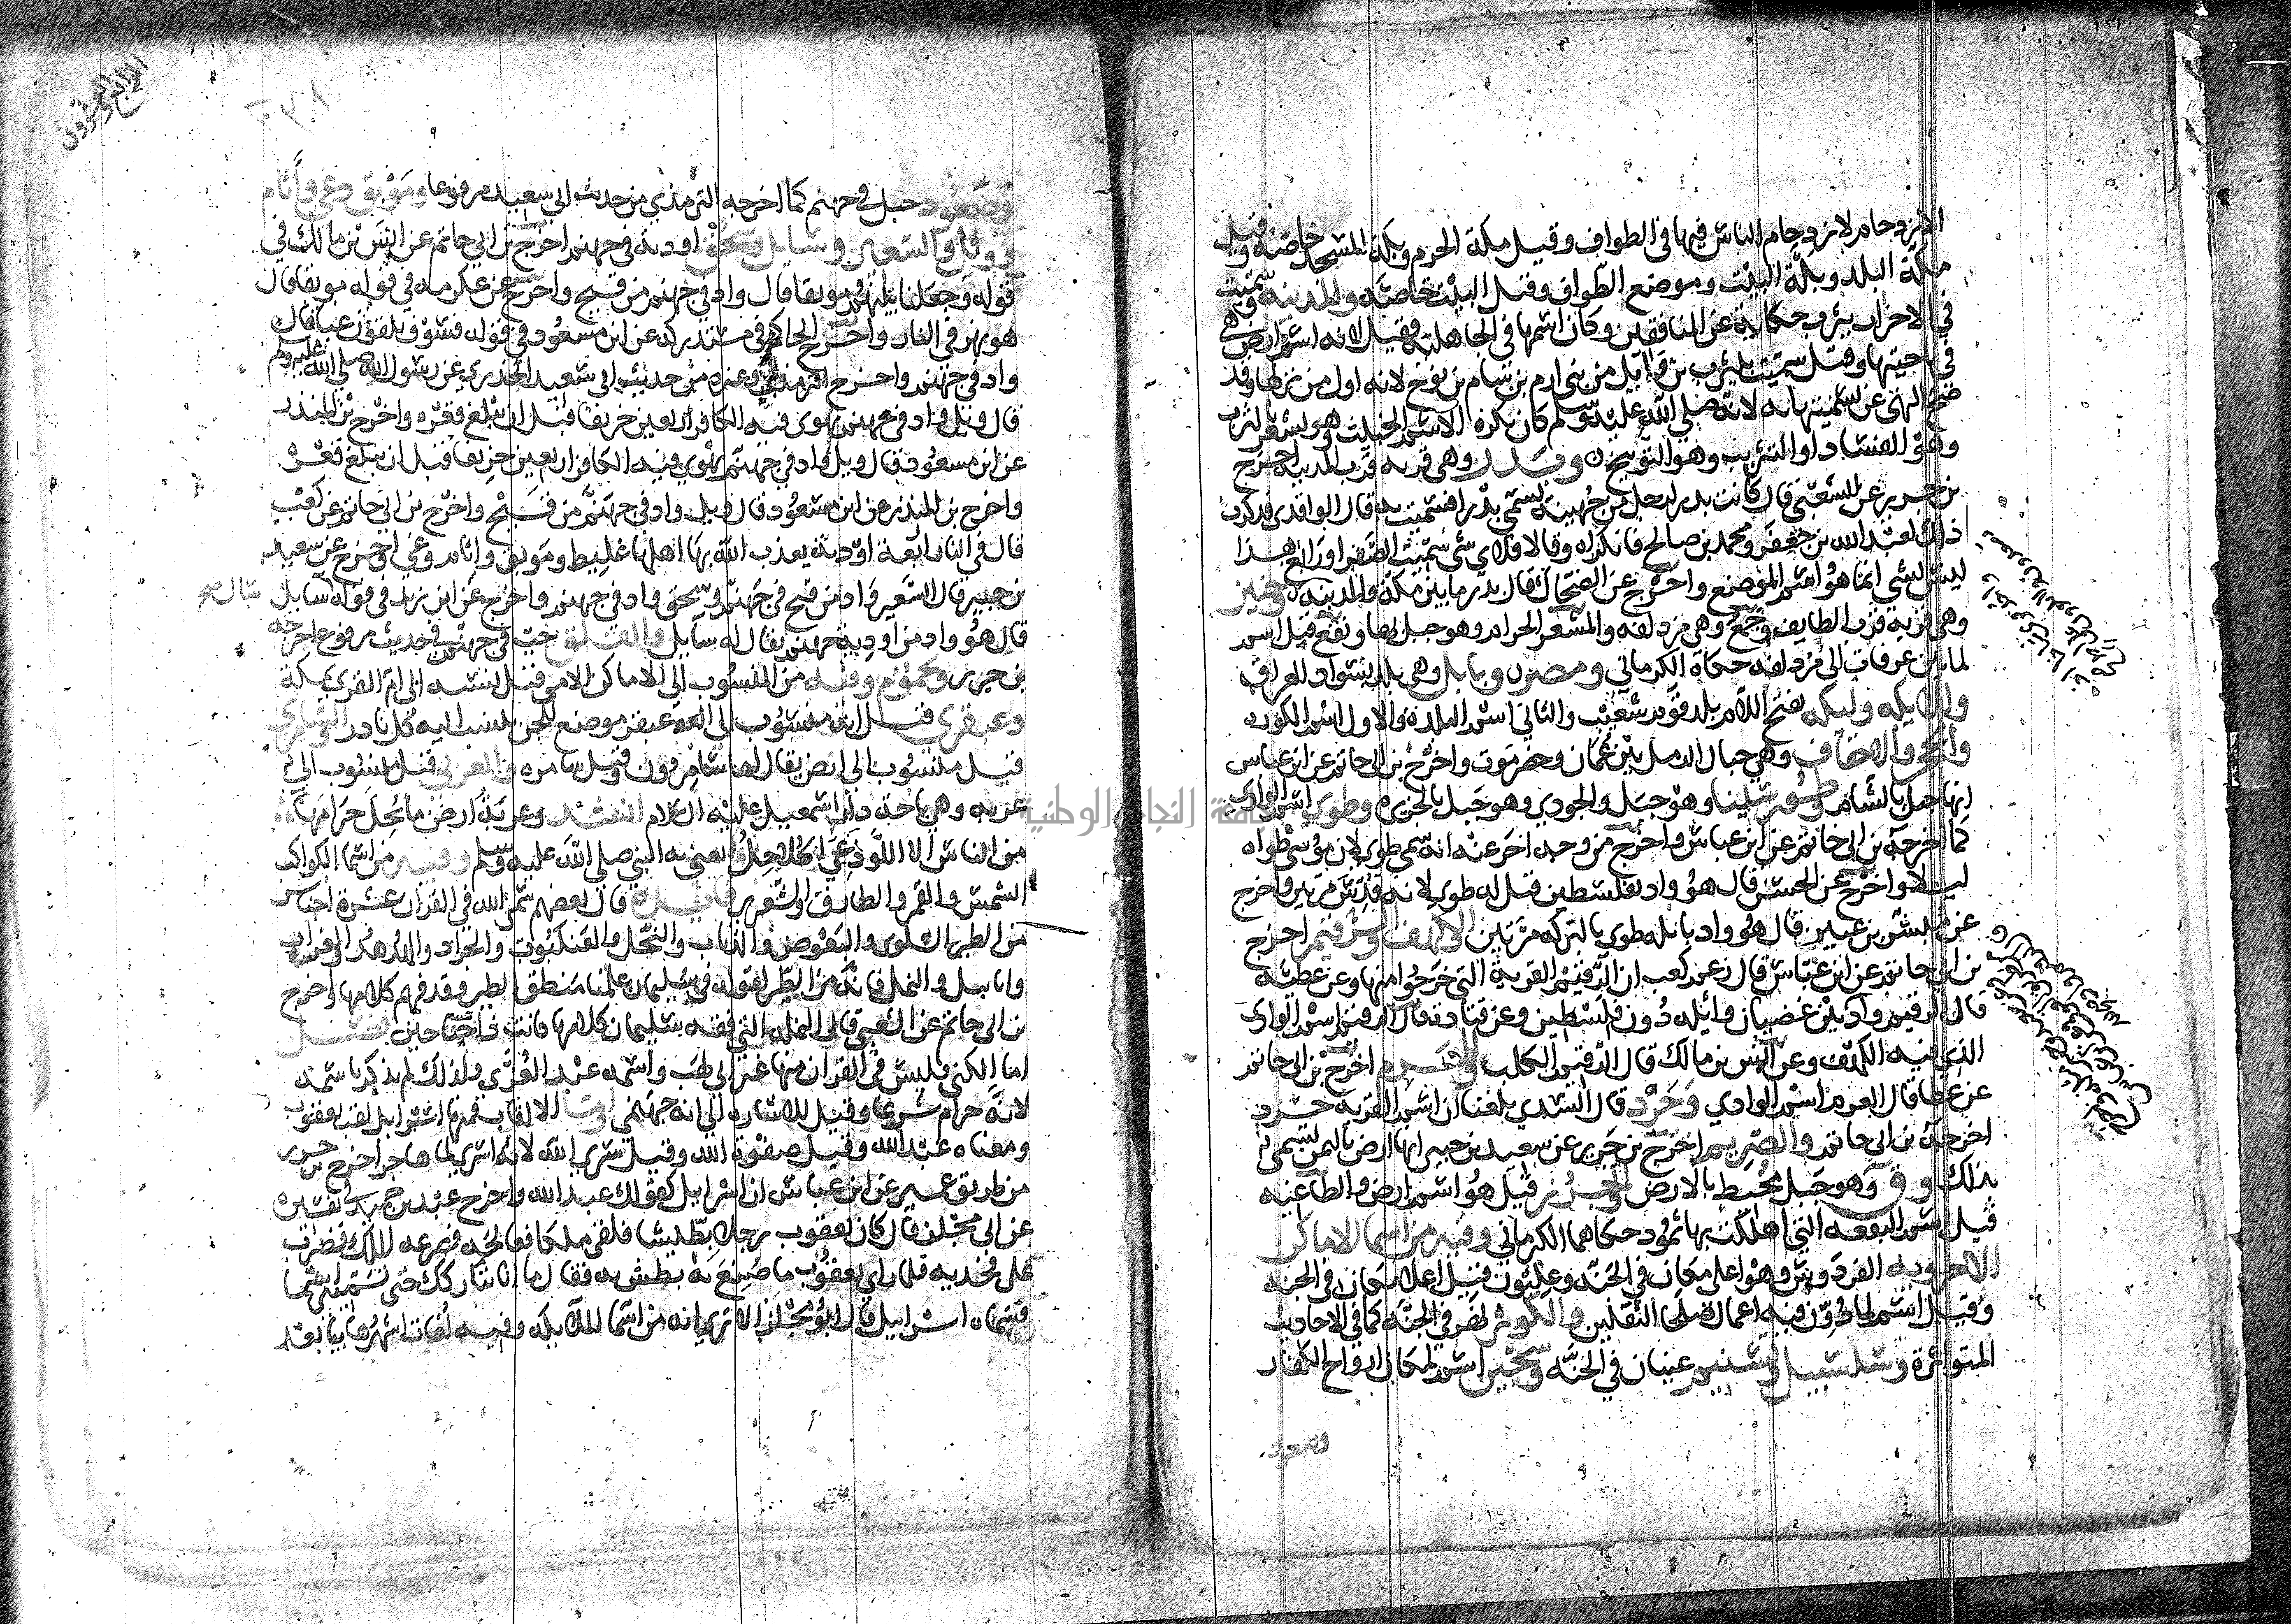 الازدحام لازدحام الناس فيها في الطواف وقيل مكة الحرم وبكة المسجد خاصة وقيل
مكة البلد وبكة البيت وموضع الطواف وقيل البيت خاصة والمدينة سميت
في الاحزاب بيثرب حكاية عن المنافقين وكان اسمها في الجاهلية فقيل لانه اسم ارض
في ناحيتها وقيل سميت بيثرب بن وايل من بني ارم بن سام بن نوح لانه اول من نزلها وقد
صح النهي عن تسميتها به لانه صلى الله عليه وسلم كان يكره الاسم الخبيث وهو يشعر بالثرب
وهو الفساد او التثريب وهو التوبيخ وبدر وهي قرية قرب المدينة اخرج
بن جرير عن الشعبي قال كانت بدر لرجل من جهينة يسمى بدرا فسميت به قال الواقدي فذكرت
ذلك لعبد الله بن جعفر ومحمد بن صالح فانكراه وقالا فلاي شي سميت الصفرا ورابغ هذا
ليس بشي انما هو اسم الموضع واخرج عن الضحاك قال بدر ما بين مكة والمدينة وحنين
وهي قرية قرب الطايف وجمع وهي مزدلفة والمشعر الحرام وهو جبل بها ونقع قيل اسم
لما بين عرفات الى مزدلفه حكاه الكرماني ومصر وبابل وهي بلد بسواد العراق
والايكه وليكه بفتح اللام بلد قوم شعيب والثاني اسم البلدة والاول اسم الكورة
والحجر والاحقاف وهي جبال الرمل بين عمان وحضرموت واخرج بن ابي حاتم عن ابن عباس
انها جبل بالشام وطور سينا وهو جبل والجودي وهو جبل بالجزيرة وطوى اسم الوادي
كما اخرجه بن ابي حاتم عن ابن عباس واخرج من وجه اخر عنه انه سمى طوى لان موسى طواه
ليلا واخرج عن الحسن قال هو واد بفلسطين قيل له طوى لانه قدس مرتين واخرج
عن مبشر بن عبيد قال هو واد بايله طوى بالبركة مرتين الكهف والرقيم اخرج
بن ابي حاتم عن ابن عباس قال زعم كعب ان الرقيم القرية التي خرجوا منها وعن عطية
قال الرقيم واد بين غضبان وايله دون فلسطين وعن قتادة قال الرقيم اسم الوادي
الذي فيه الكهف وعن انس بن مالك قال الرقيم الكلب والعرم اخرج بن ابي حاتم
عن عطا قال العرم اسم الوادي وحرد قال السدي بلغنا ان اسم القرية حرد
اخرجه بن ابي حاتم والصريم اخرج بن جرير عن سعيد بن جبير انها ارض باليمن تسمى
بذلك وق وهو جبل محيط بالارض والجرز قيل هو اسم ارض والطاغية
قيل اسم البقعه التي اهلكت بها ثمود حكاهما الكرماني وفيه من اسما الاماكن
الاخرويه الفردوس وهو اعلى مكان في الجنة وعليون قيل اعلا مكان في الجنة
وقيل اسم لما دون فيه اعمال صلحا الثقلين والكوثر نهر في الجنة كما في الاحاديث
المتواترة وسلسبيل وتسنيم عينان في الجنة وسجين اسم لمكان ارواح الكفار
وصعود
الرابع والعشرون
وصعود جبل في جهنم كما اخرجه الترمذي من حديث ابي سعيد مرفوعا وموبق وغي واثام
وويل والسعير وسايل وسحق اودية في جهنم اخرج بن ابي حاتم عن انس بن مالك في
قوله وجعلنا بينهم موبقا قال واد في جهنم من قيح واخرج عن عكرمه في قوله موبقا قال
هو نهر في النار واخرج الحاكم في مستدركه عن ابن مسعود في قوله فسوف يلقون غيا قال
واد في جهنم واخرج الترمذي وغيره من حديث ابي سعيد الخدري عن رسول الله صلى الله عليه وسلم
قال ويل واد في جهنم يهوي فيه الكافر اربعين خريفا قبل ان يبلغ قعره واخرج بن المنذر
عن ابن مسعود قال ويل واد في جهنم يهوي فيه الكافر اربعين خريفا قبل ان يبلغ قعره
واخرج بن المنذر عن ابن مسعود قال ويل واد في جهنم من قيح واخرج بن ابي حاتم عن كعب
قال في النار اربعة اودية يعذب الله بها اهلها غليظ وموبق واثام وغي واخرج عن سعيد
بن جبير قال السعير واد من قيح في جهنم وسحق واد في جهنم واخرج عن ابن زيد في قوله سايل
سال صح
قال هو واد من اودية جهنم يقال له سايل والفلق جب في جهنم في حديث مرفوع اخرجه
بن جرير ويحموم وفيه من المنسوب الى الاماكن الامي قيل نسبة الى ام القرى مكة
وعبقري قيل انه منسوب الى عبقر موضع للجن ينسب اليه كل نادر والسامري
قيل منسوب الى ارض يقال لها سامرون وقيل سامره والعربي قيل منسوب الى
عربه وهي باحة دار اسمعيل عليه السلام انشد وعربة ارض ما يحل حرامها
من الناس الا اللوذعي الحلاحل يعني به النبي صلى الله عليه وسلم وفيه من اسما الكواكب
الشمس والقمر والطارق والشعرى فايدة قال بعضهم سمى الله في القران عشرة اجناس
من الطير السلوى والبعوض والذباب والنحل والعنكبوت والجراد والهدهد والغراب
وابابيل والنمل فانه من الطير لقوله في سليمان علمنا منطق الطير وقد فهم كلامها واخرج
بن ابي حاتم عن الشعبي قال النملة التي فقه سليمان كلامها كانت ذات جناحين فصل
اما الكنى فليس في القران منها غير ابي لهب واسمه عبد العزى ولذلك لم يذكر باسمه
لانه حرام شرعا وقيل للاشارة الى انه جهنمي واما الالقاب فمنها اسرائيل لقب يعقوب
ومعناه عبد الله وقيل صفوة الله وقيل سري الله لانه اسرى لما هاجر اخرج بن جرير
من طريق عمير عن ابن عباس ان اسرايل كقولك عبد الله واخرج عبد بن حميد في تفسيره
عن ابي مجلز قال كان يعقوب رجلا بطيشا فلقي ملكا فعالجه فصرعه الملك فضرب
على فخذيه فلما راى يعقوب ما صنع به بطش به فقال ما انا بتاركك حتى تسميني اسما
فسماه اسراييل قال ابو مجلز الا ترى انه من اسما الملايكة وفيه لغات اشهرها بيا بعد
جامعة النجاح الوطنية